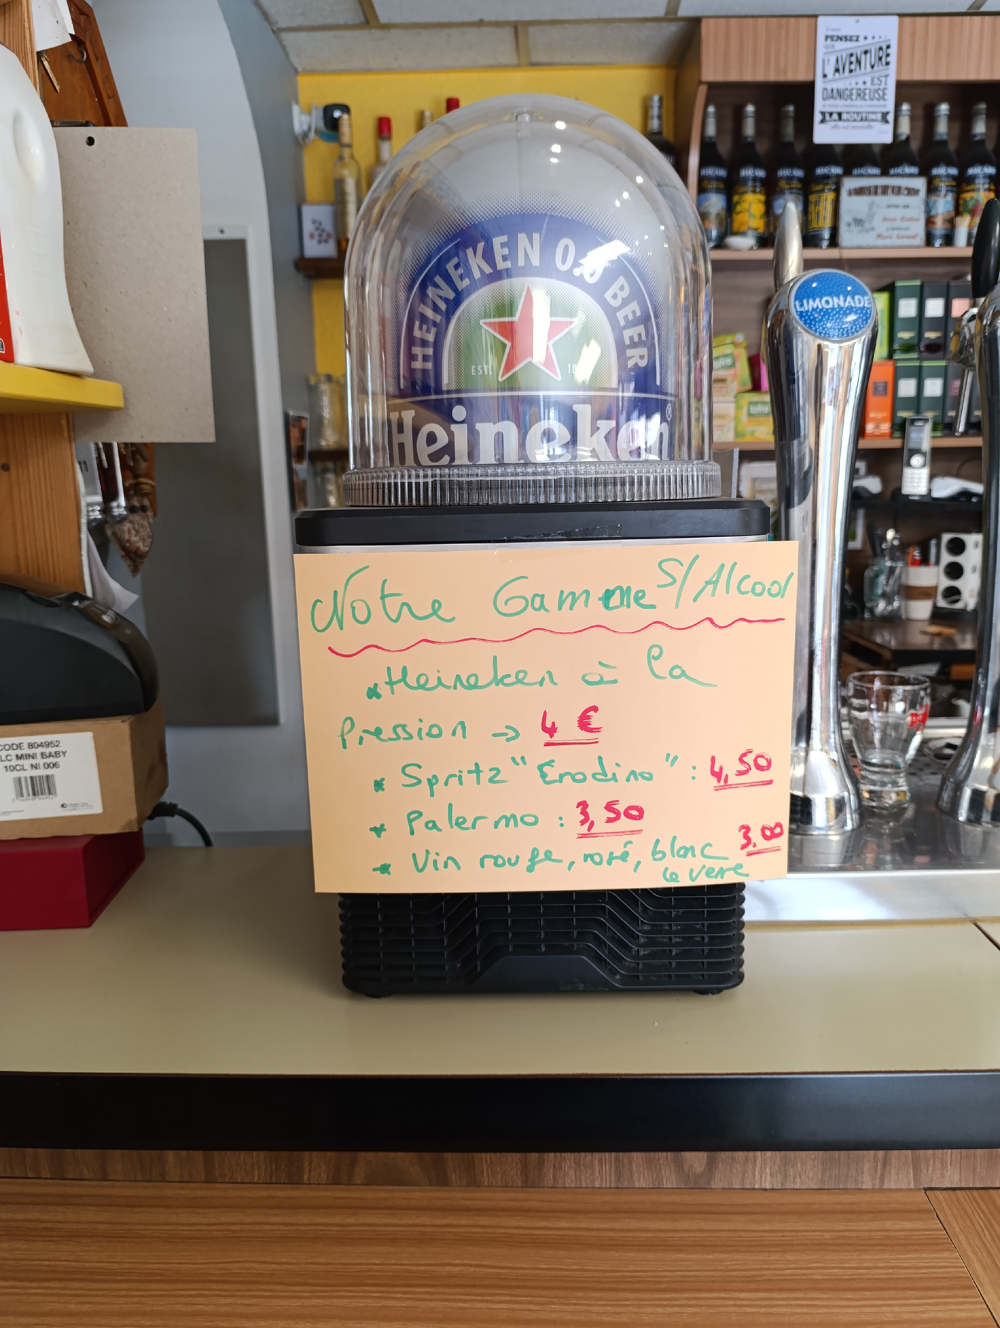 PENSEZ
L'AVENTURE
EST
DANGEREUSE
LA ROUTINE
HEINEKEN 0.0 BEER
EST. 18
Heineken®
LIMONADE
Notre Gamme S/Alcool
* Heineken à la
Pression → 4 €
* Spritz "Erodino" : 4,50
* Palermo : 3,50
* Vin rouge, rosé, blanc 3.00
le verre
CODE 804952
LC MINI BABY
10CL NI 006